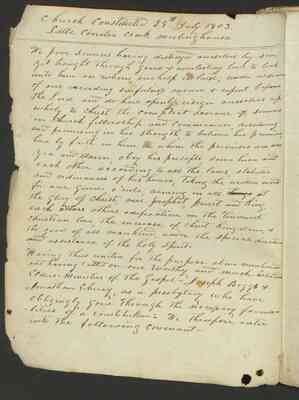 Church Constituted 23d July 1803.
Little Creek meetinghouse
We poor sinners having destroyed ourselves by sin
yet brought through grace a to look
unto him on whom our help is laid, under a sense
of our exceeding sinfulness and repent before
the Lord and do here openly resign ourselves up
wholly to Christ the compleat Saviour of sinners
in Church fellowship and Communion
and promising in his strength to believe his promises
live by faith in him in whom the promises are all
yea and Amen, obey his precepts love him and
each other according to all the laws statutes
and ordinances of his house, taking the written word
for our Guide &c aiming in all at
the glory of Christ our prophet priest and King
each others in the
christian love, the increase of
the good of all mankind, under the
and assistance of the holy Spirit.
Having thus united for the purpose
and having called on our worthy and much
Ministers of the Gospel. Joseph Biggs &
Jonathan as a presbytery who have
obligingly gone through the necessary
of a constitution We therefore enter
into the following Covenant